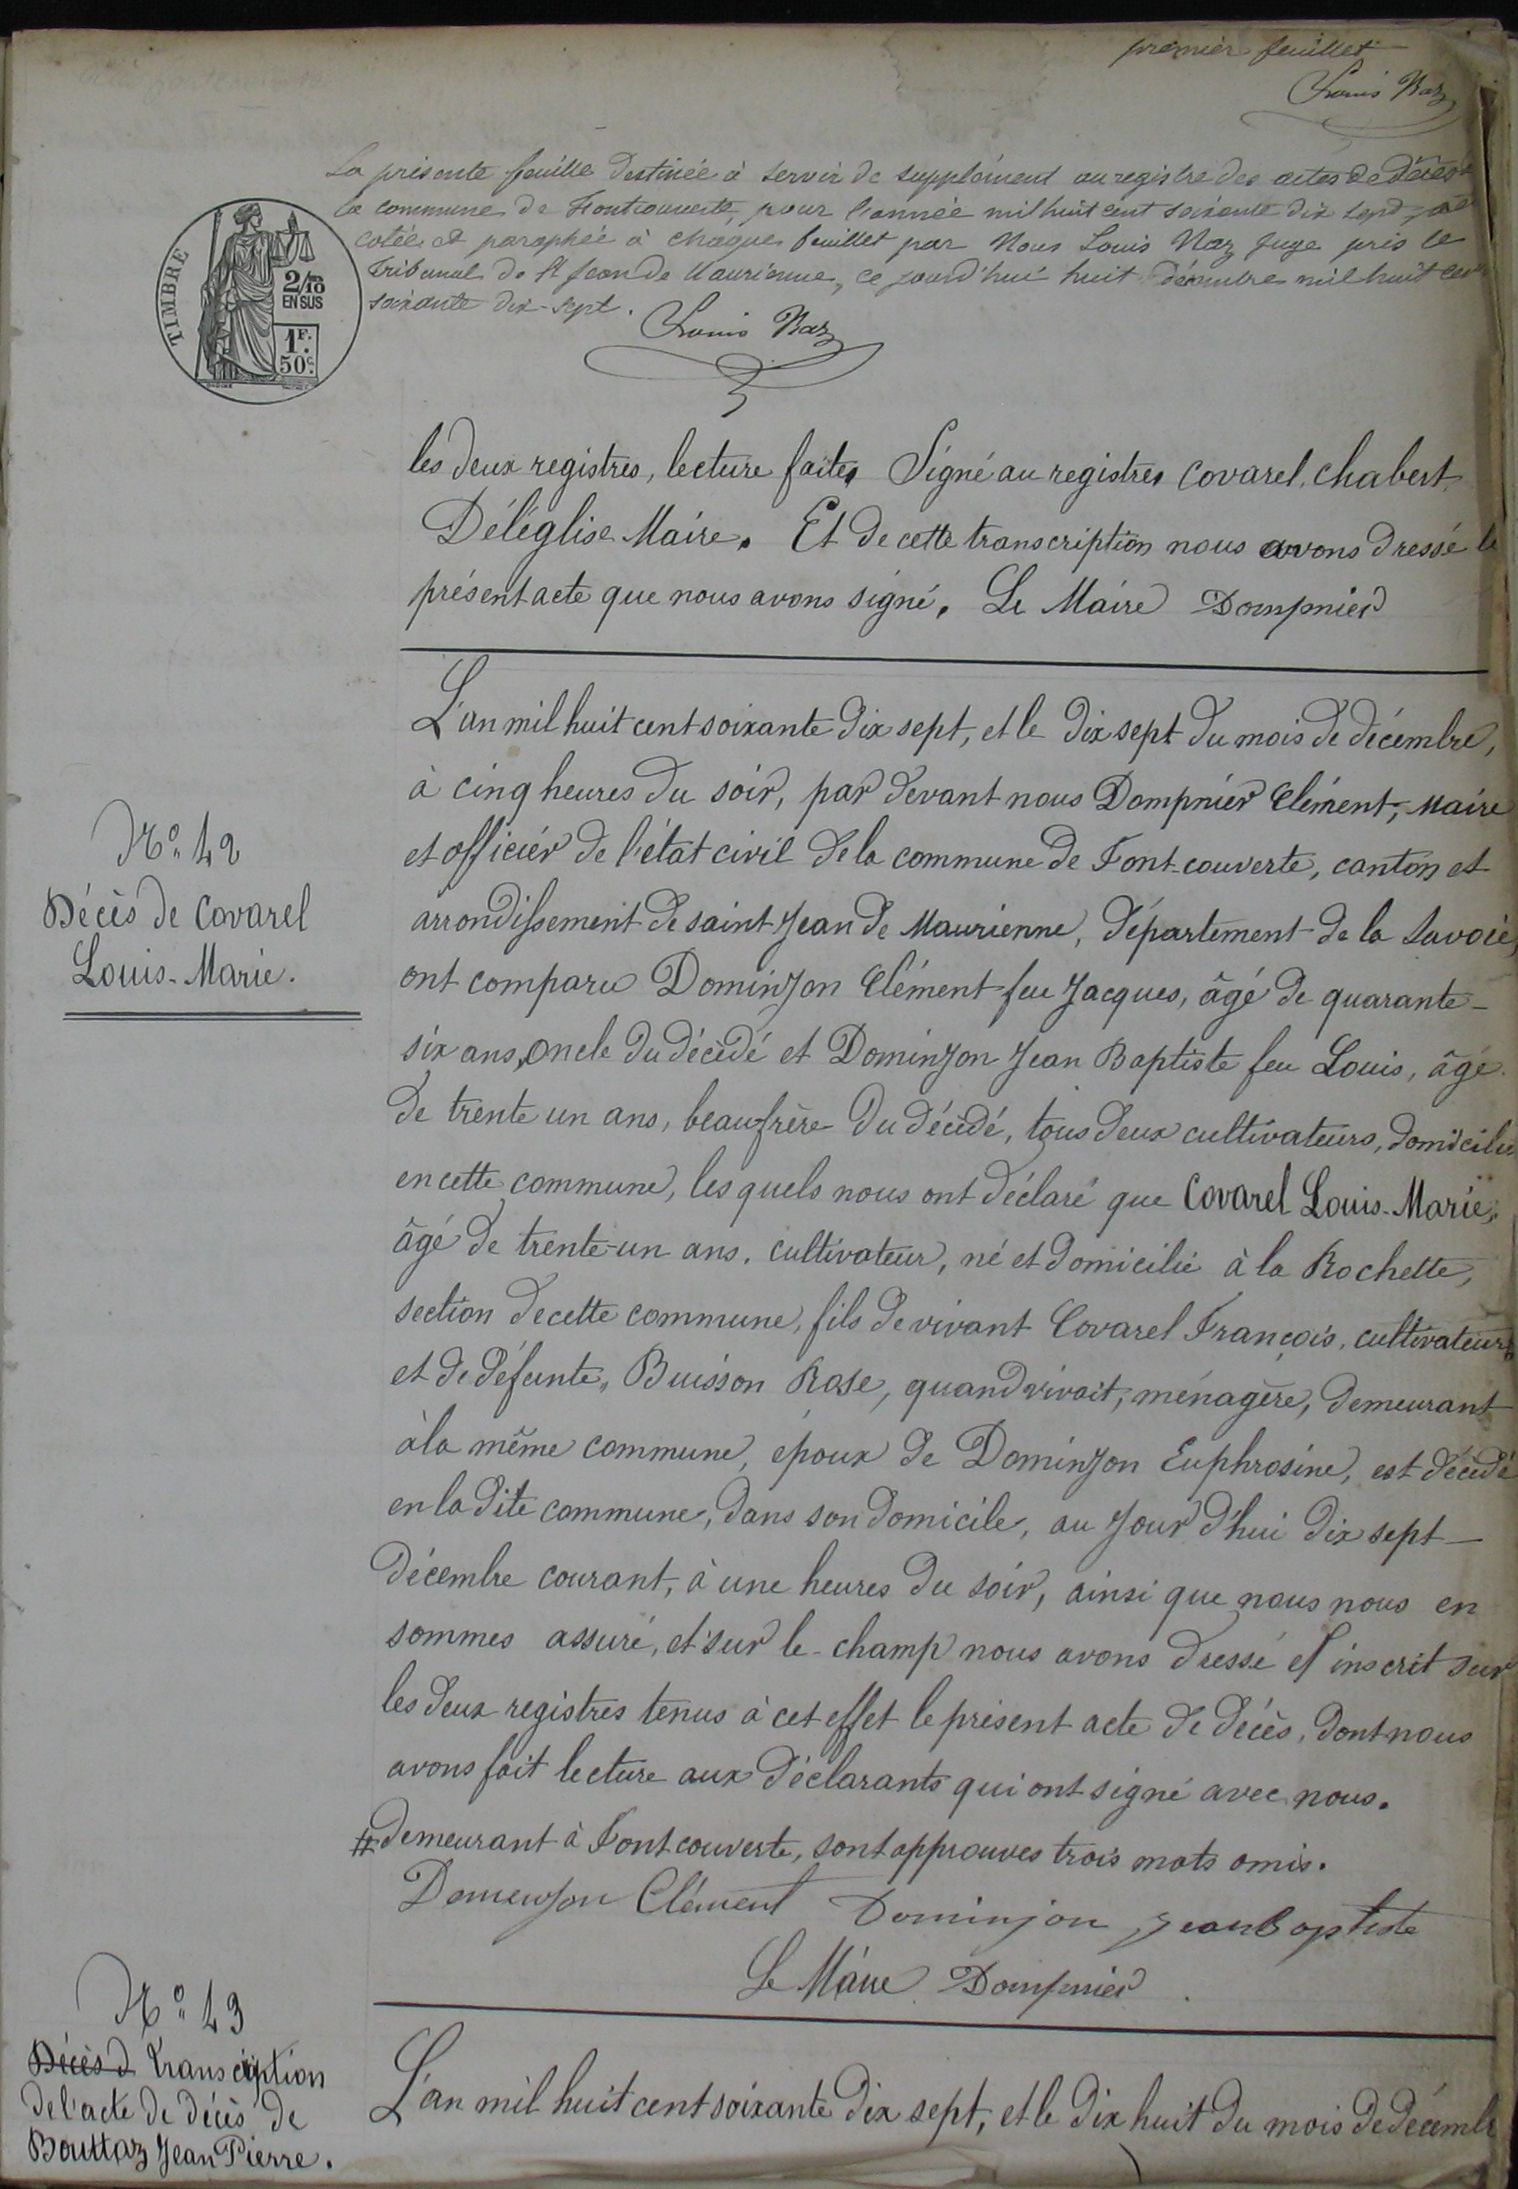 premier feuillet
Louis Naz
La présente feuille destinée à servir de supplément au registre des actes de décès de
la commune de Fontcouverte, pour l'année mil huit cent soixante dix sept, a été
cotée et paraphée à chaque feuillet par Nous Louis Naz Juge près le
Tribunal de St Jean de Maurienne, ce jourd'hui huit décembre mil huit cent
soixante dix-sept.
Louis Naz
TIMBRE
2/10
EN SUS
1F.
50c.
les deux registres, lecture faite. Signé au registres Covarel, Chabert
Déléglise Maire. Et de cette transcription nous avons dressé le
présent acte que nous avons signé. Le Maire Dompnier
L'an mil huit cent soixante dix sept, et le dix sept du mois de décembre,
à cinq heures du soir, par devant nous Dompnier Clément, Maire
et officier de l'état civil de la commune de Font-couverte, canton et
arrondissement de saint Jean de Maurienne, département de la Savoie,
ont comparu Dominjon Clément feu Jacques, âgé de quarante-
six ans, oncle du décèdé et Dominjon Jean Baptiste feu Louis, âgé
de trente un ans, beau-frère du décèdé, tous deux cultivateurs, domicilié
en cette commune, les quels nous ont déclaré que Covarel Louis-Marie,
âgé de trente-un ans, cultivateur, né et domicilié à la Rochette,
section de cette commune, fils de vivant Covarel François, cultivateur #
et de défunte, Buisson Rose, quand vivait, ménagère, demeurant
à la même commune, époux de Dominjon Euphrosine, est décédé
en la dite commune, dans son domicile, au jour d'hui dix sept
décembre courant, à une heures du soir, ainsi que nous nous en
sommes assuré, et sur le-champ nous avons dressé et inscrit sur
les deux registres tenus à cet effet le présent acte de décès, dont nous
avons fait lecture aux déclarants qui ont signé avec nous.
# demeurant à Fontcouverte, sont approuves trois mots omis.
Domenjon Clément Dominjon Jean Baptiste
Le Maire Dompnier
N° 42
Décès de Covarel
Louis-Marie.
N° 43
Décès d Transcription
de l'acte de décès de
Bouttaz Jean Pierre.
L'an mil huit cent soixante dix sept, et le dix huit du mois de décemb